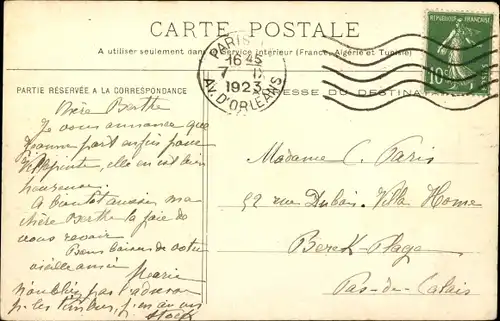 CARTE POSTALE
A utiliser seulement dans le Service intérieur (France, Algérie et Tunisie)
PARTIE RÉSERVÉE A LA CORRESPONDANCE
ADRESSE DU DESTINATAIRE
PARIS
16 45
7 - IX
1923
AV. D'ORLÉANS
RÉPUBLIQUE FRANÇAISE
10c
POSTES
Chère Berthe
Je vous annonce que
Jeanne part enfin pour
Villepinte, elle en est bien
heureuse.
A bientôt aussi ma
chère Berthe la joie de
vous revoir
Bons baisers de votre
vieille amie
Marie
N'oubliez pas l'adresse
p. les timbres, j'en ai un
stock
Madame C. Paris
52 rue Dubois. Villa Home
Berck-Plage
Pas-de-Calais